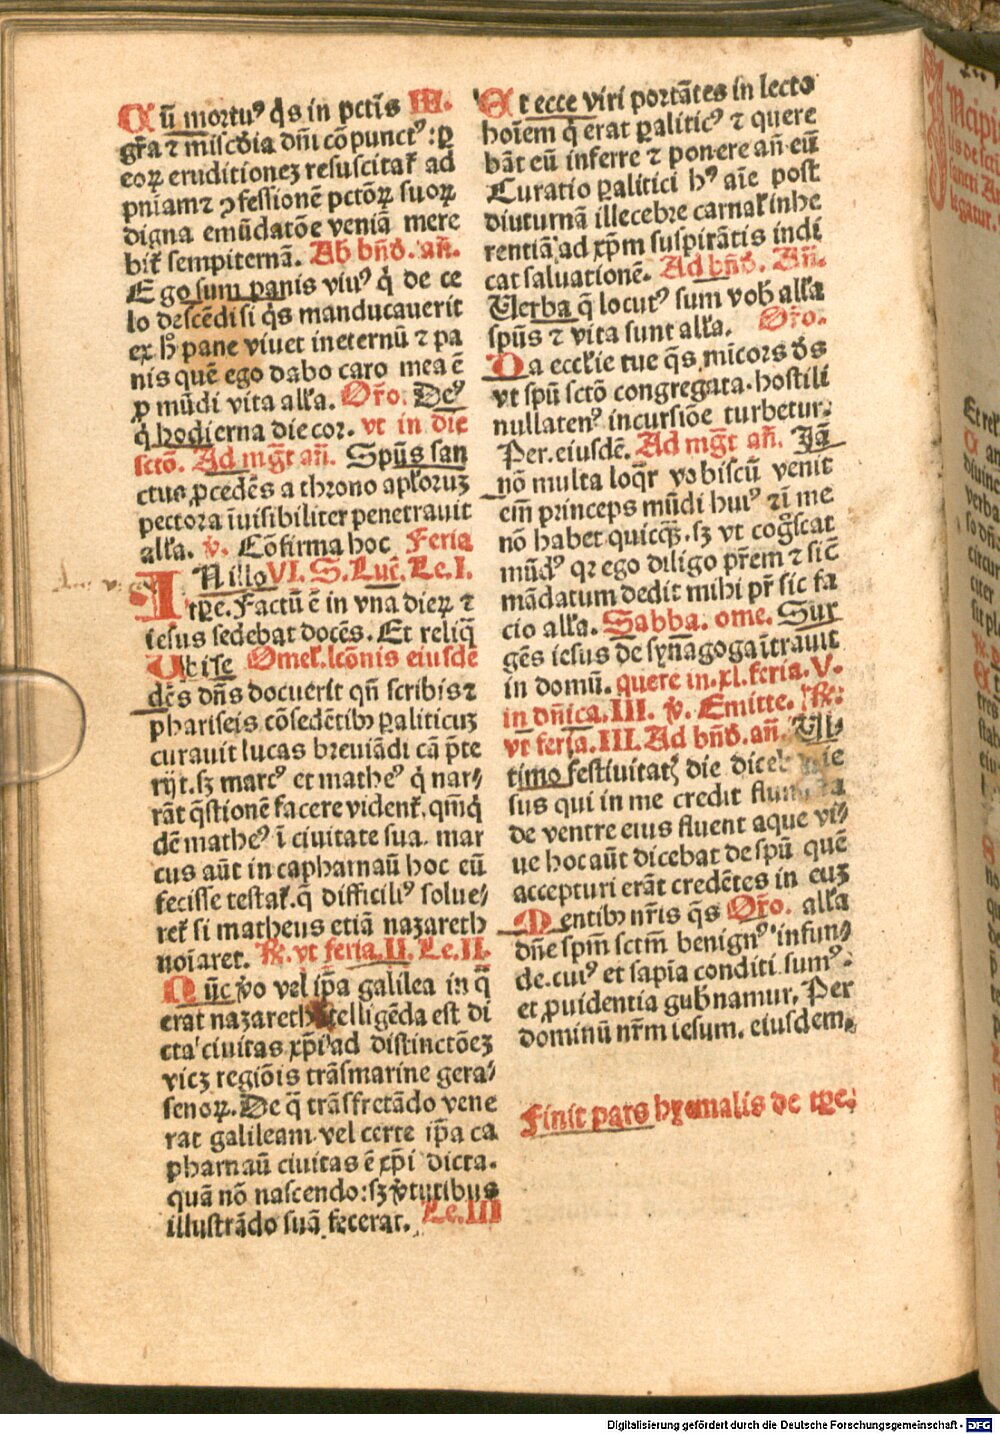 Cū mortuꝰ q̄s in pctīs III.
gr̄a ⁊ miſc̄dia dn̄i cōpunctꝰ: ꝑ
eoꝝ eruditioneꝫ reſuscitaꝉ ad
pn̄iam ⁊ ꝯfeſſionē pctōꝝ ſuoꝝ
digna emūdatōe veniā mere
biꝉ ſempiternā. Ad bn̄d. an̄.
Ego ſum panis viuꝰ q̄ de ce
lo deſcēdi ſi q̄s manducauerit
ex h̄ pane viuet in eternū ⁊ pa
nis quē ego dabo caro mea ē
ꝓ mūdi vita alꝉa. Or̄o. Deꝰ
q̄ hodierna die cor. vt in die
ſctō. Ad mgt̄ an̄. Spūs ſan
ctus ꝓcedēs a throno apꝉoruꝫ
pectora īuiſibiliter penetrauit
alꝉa. v̄. Cōfirma hoc Feria
IN illo VI. S. Luc̄. Le. I.
tꝑe. Factū ē in vna dieꝝ ⁊
ieſus ſedebat docēs. Et reliq̄
Ubi ſe Omeꝉ. lcōnis eiuſde
dēs dn̄s docuerit qn̄ ſcribis ⁊
phariſeis cōſedētibꝰ ꝑaliticuꝫ
curauit lucas breuiādi cā p̄te
rijt. ſꝫ marcꝰ et matheꝰ q̄ nar⸗
rāt q̄ſtionē facere videnꝉ. qm̄q̄
dē matheꝰ ī ciuitate ſua. mar
cus aūt in capharnaū hoc eū
feciſſe teſtaꝉ. q̄ difficiliꝰ ſolue⸗
reꝉ ſi matheus etiā nazareth
noīaret. R̄. vt feria. II. Le. II.
Nūc v̄o vel ip̄a galilea in q̄
erat nazareth ītelligēda eſt di
cta ciuitas xp̄i ad diſtinctōeꝫ
viꝫ regiōis trāſmarine gera⸗
ſenoꝝ. De q̄ trāſfretādo vene
rat galileam. vel certe ip̄a ca
pharnaū ciuitas ē xp̄i dicta.
quā nō naſcendo: ſꝫ v̄tutibus
illuſtrādo ſuā fecerat. Le. III
Et ecce viri portātes in lecto
hoīem q̄ erat ꝑaliticꝰ ⁊ quere
bāt eū inferre ⁊ ponere an̄ eū
Curatio ꝑalitici hꝰ aīe poſt
diuturnā illecebre carnaꝉ inhe
rentiā ad xp̄m ſuſpirātis indi
cat ſaluationē. Ad bn̄d. An̄.
Uerba q̄ locutꝰ ſum vob̄ alꝉa
ſpūs ⁊ vita ſunt alꝉa. Or̄o.
Da eccꝉie tue q̄s micors d̄s
vt ſpū ſctō congregata. hoſtili
nullatenꝰ incurſiōe turbetur.
Per. eiuſdē. Ad mgt̄ an̄. Jā
nō multa loqr̄ vobiſcū venit
em̄ princeps mūdi huiꝰ ⁊ ī me
nō habet quicq̄. ſꝫ vt coḡſcat
mūdꝰ qꝛ ego diligo pr̄em ⁊ ſic̄
mādatum dedit mihi pr̄ ſic fa
cio alꝉa. Sabba. ome. Sur
gēs ieſus de ſynagoga ītrauit
in domū. quere in. xl. feria. V.
in dn̄ica. III. v̄. Emitte. R̄.
vt feria. III. Ad bn̄d. an̄. Ul⸗
timo feſtiuitatꝭ die ie
ſus qui in me credit
de ventre eius fluent aque vi⸗
ue hoc aūt dicebat de ſpū quē
accepturi erāt credētes in euꝫ
Mentibꝰ nr̄is q̄s Or̄o. alꝉa
dn̄e ſpm̄ ſctm̄ benignꝰ infun⸗
de. cuiꝰ et ſapīa conditi ſumꝰ.
et ꝓuidentia gub̄namur. Per
dominū nr̄m ieſum. eiuſdem.
Finit pars hyemalis de tꝑe.
Digitalisierung gefördert durch die Deutsche Forschungsgemeinschaft - DFG